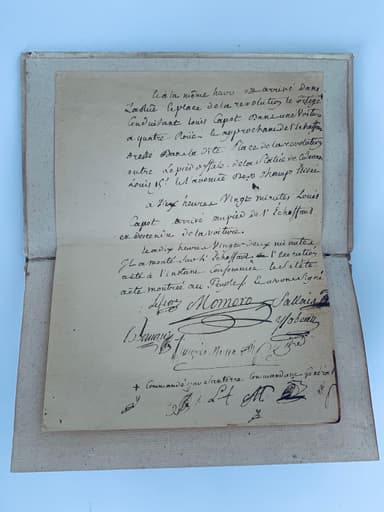 et a la même heure est arrivé dans
La Rue et place de la revolution le cortege
Conduisant Louis Capet dans une Voiture
a quatre Roües et approchant de l'échaffau
dresse dans la dite place de la revolution
entre Le pied d'Estale de la statüe de
Louis 15e et l'avenüe des Champs Elisée
a dix heures Vingt minutes Louis
Capet arrivé au pied de l'Echaffaut
est descendu de la voiture.
et a dix heures Vingt deux minutes
Il a monté sur l'Echaffaut
a été à l'instant et sa tête
a été montrée au Peuple et avons signé
Lefevre Momoro Sallais
Isabeau
Bernard
+ Commandé par Santerre Commandant Général